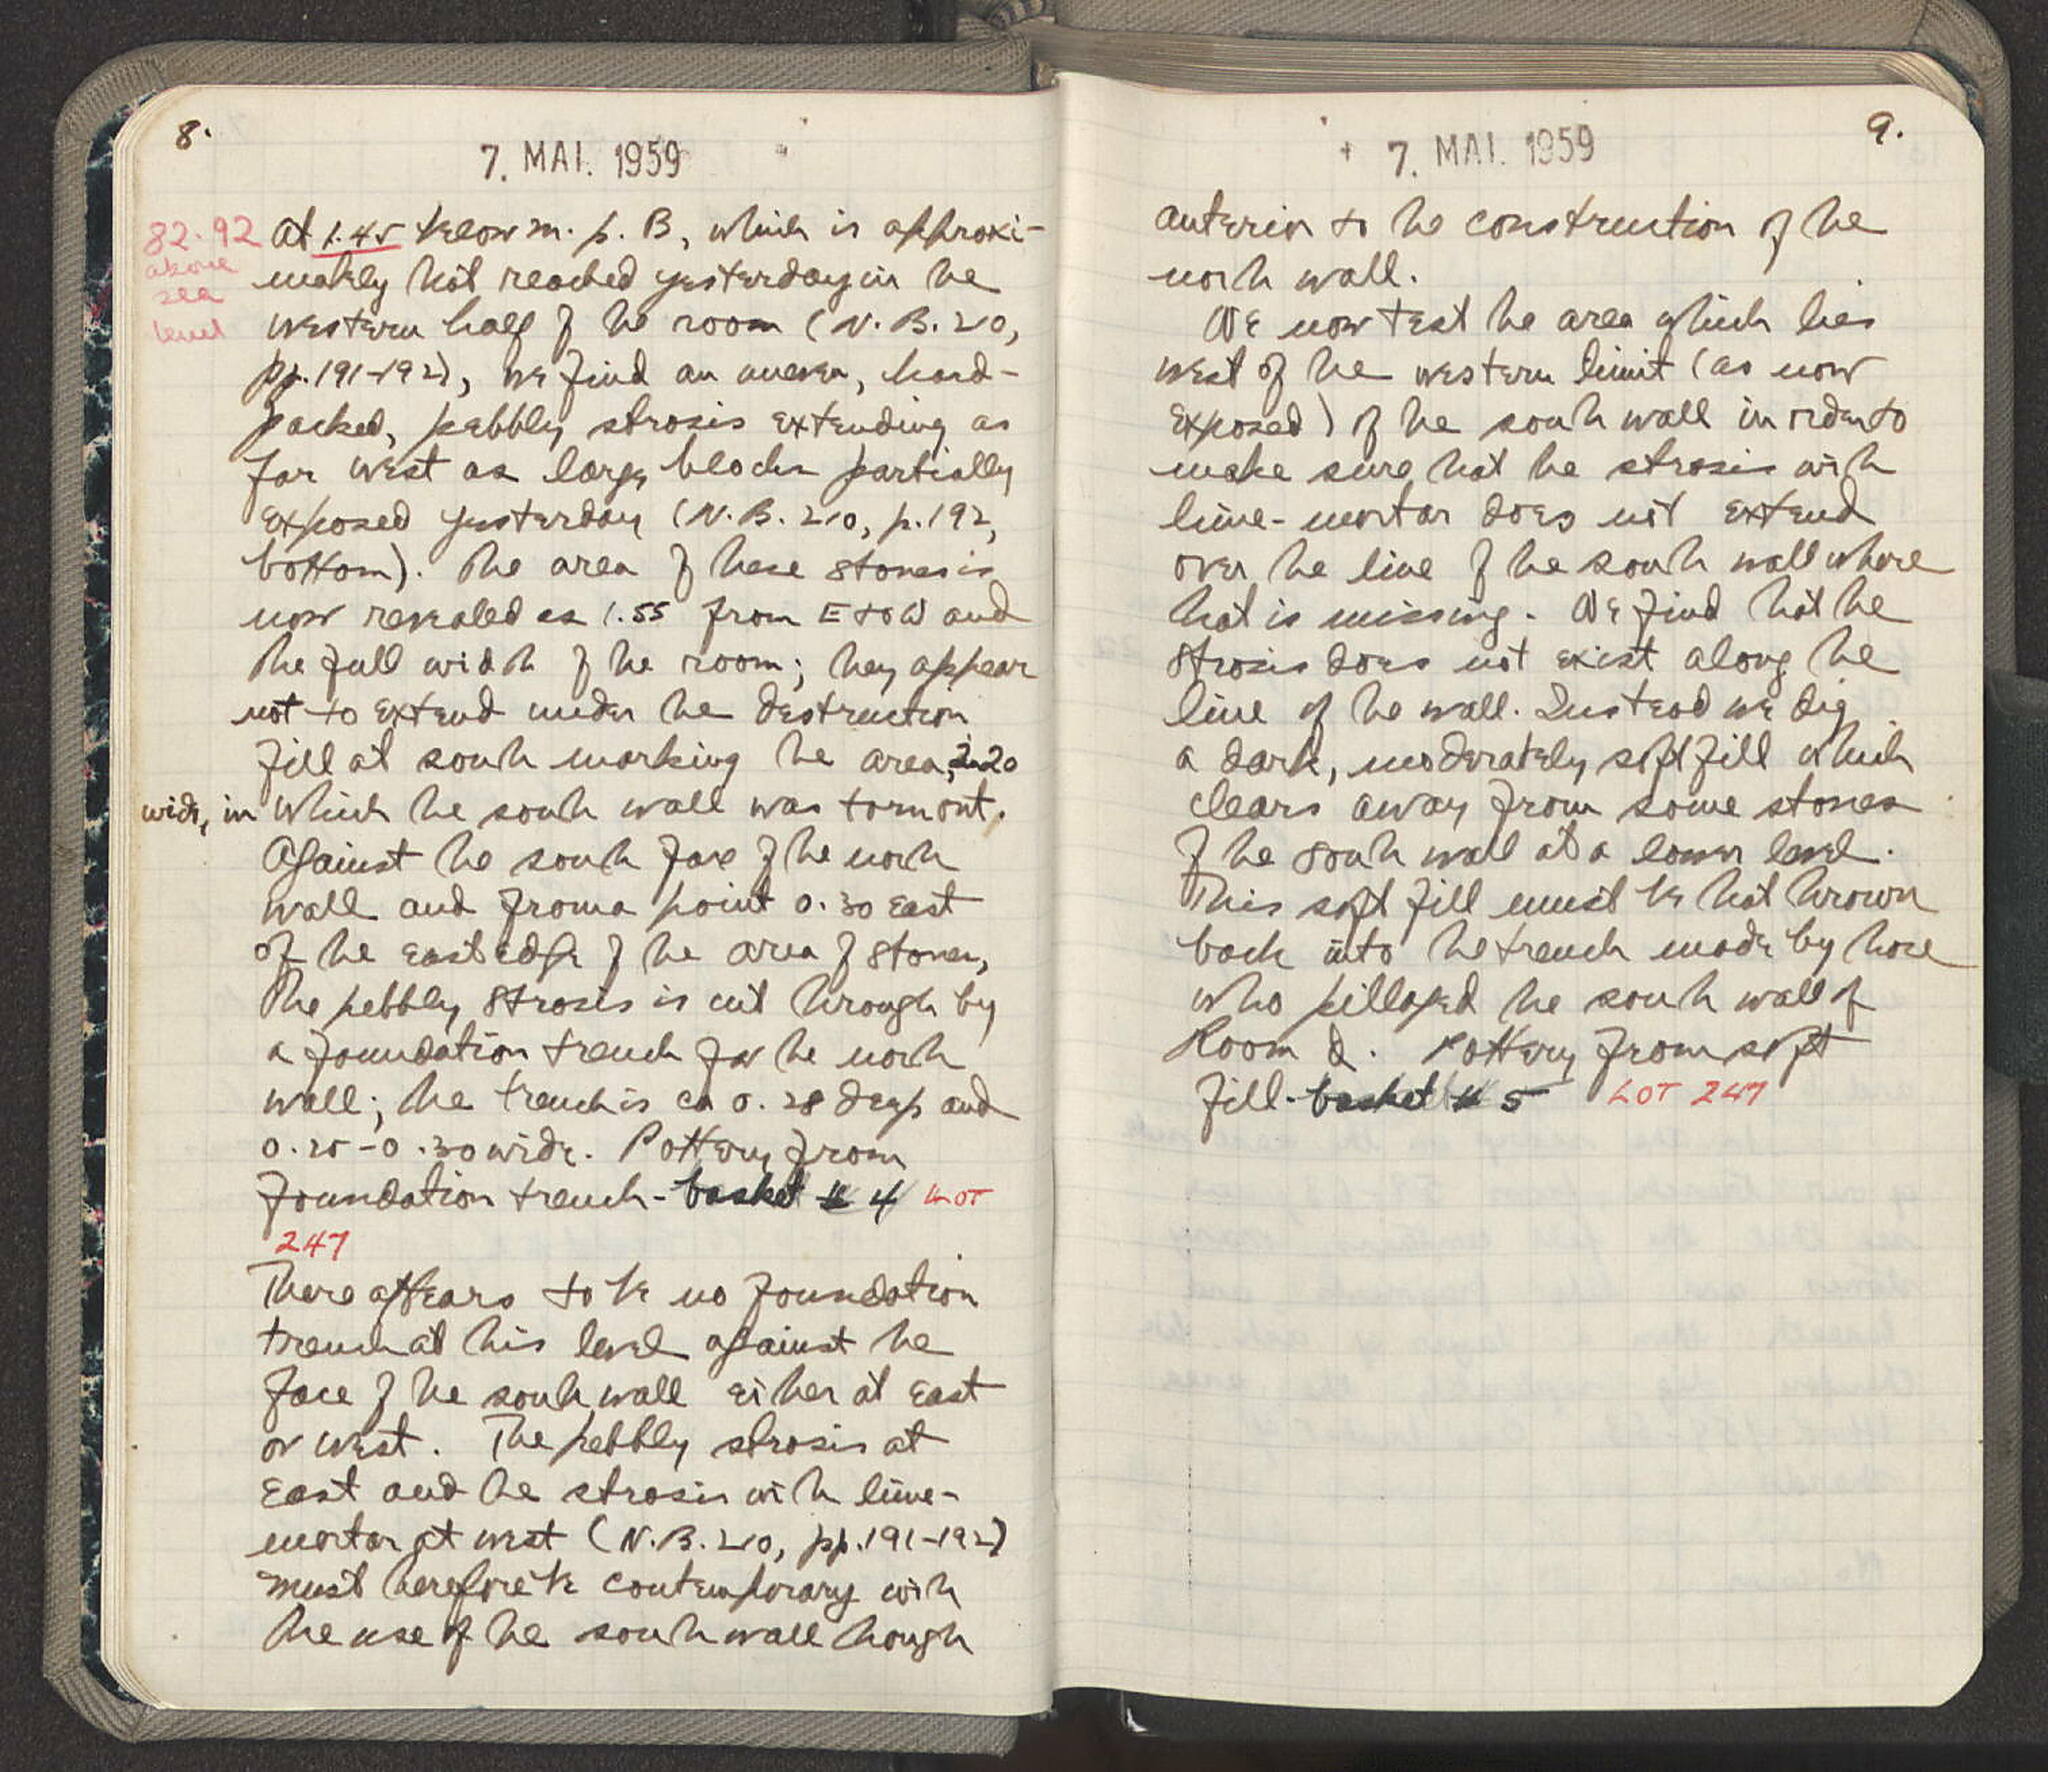 8.
7. MAI. 1959
82.92
above
sea
level
At 1.45 below m. p. B, which is approxi-
mately that reached yesterday in the
western half of the room (N. B. 210,
pp. 191-192), we find an uneven, hard-
packed, pebbly strosis extending as
far west as large blocks partially
exposed yesterday (N. B. 210, p. 192,
bottom). The area of these stones is
now revealed as 1.55 from E to W and
the full width of the room; they appear
not to extend under the destruction
fill at south marking the area, 2.20
wide, in which the south wall was torn out.
Against the south face of the north
wall and from a point 0.30 east
of the east edge of the area of stones,
the pebbly strosis is cut through by
a foundation trench for the north
wall; the trench is ca 0.28 deep and
0.25-0.30 wide. Pottery from
foundation trench - basket # 4 LOT
247
There appears to be no foundation
trench at this level against the
face of the south wall either at east
or west. The pebbly strosis at
east and the strosis with lime-
mortar at west (N. B. 210, pp. 191-192)
must therefore be contemporary with
the use of the south wall though
7. MAI. 1959
9.
anterior to the construction of the
north wall.
We now test the area which lies
west of the western limit (as now
exposed) of the south wall in order to
make sure that the strosis with
lime-mortar does not extend
over the line of the south wall where
that is missing. We find that the
strosis does not exist along the
line of the wall. Instead we dig
a dark, moderately soft fill which
clears away from some stones
of the south wall at a lower level.
This soft fill must be that thrown
back into the trench made by those
who pillaged the south wall of
Room d. Pottery from soft
fill - basket # 5 LOT 247